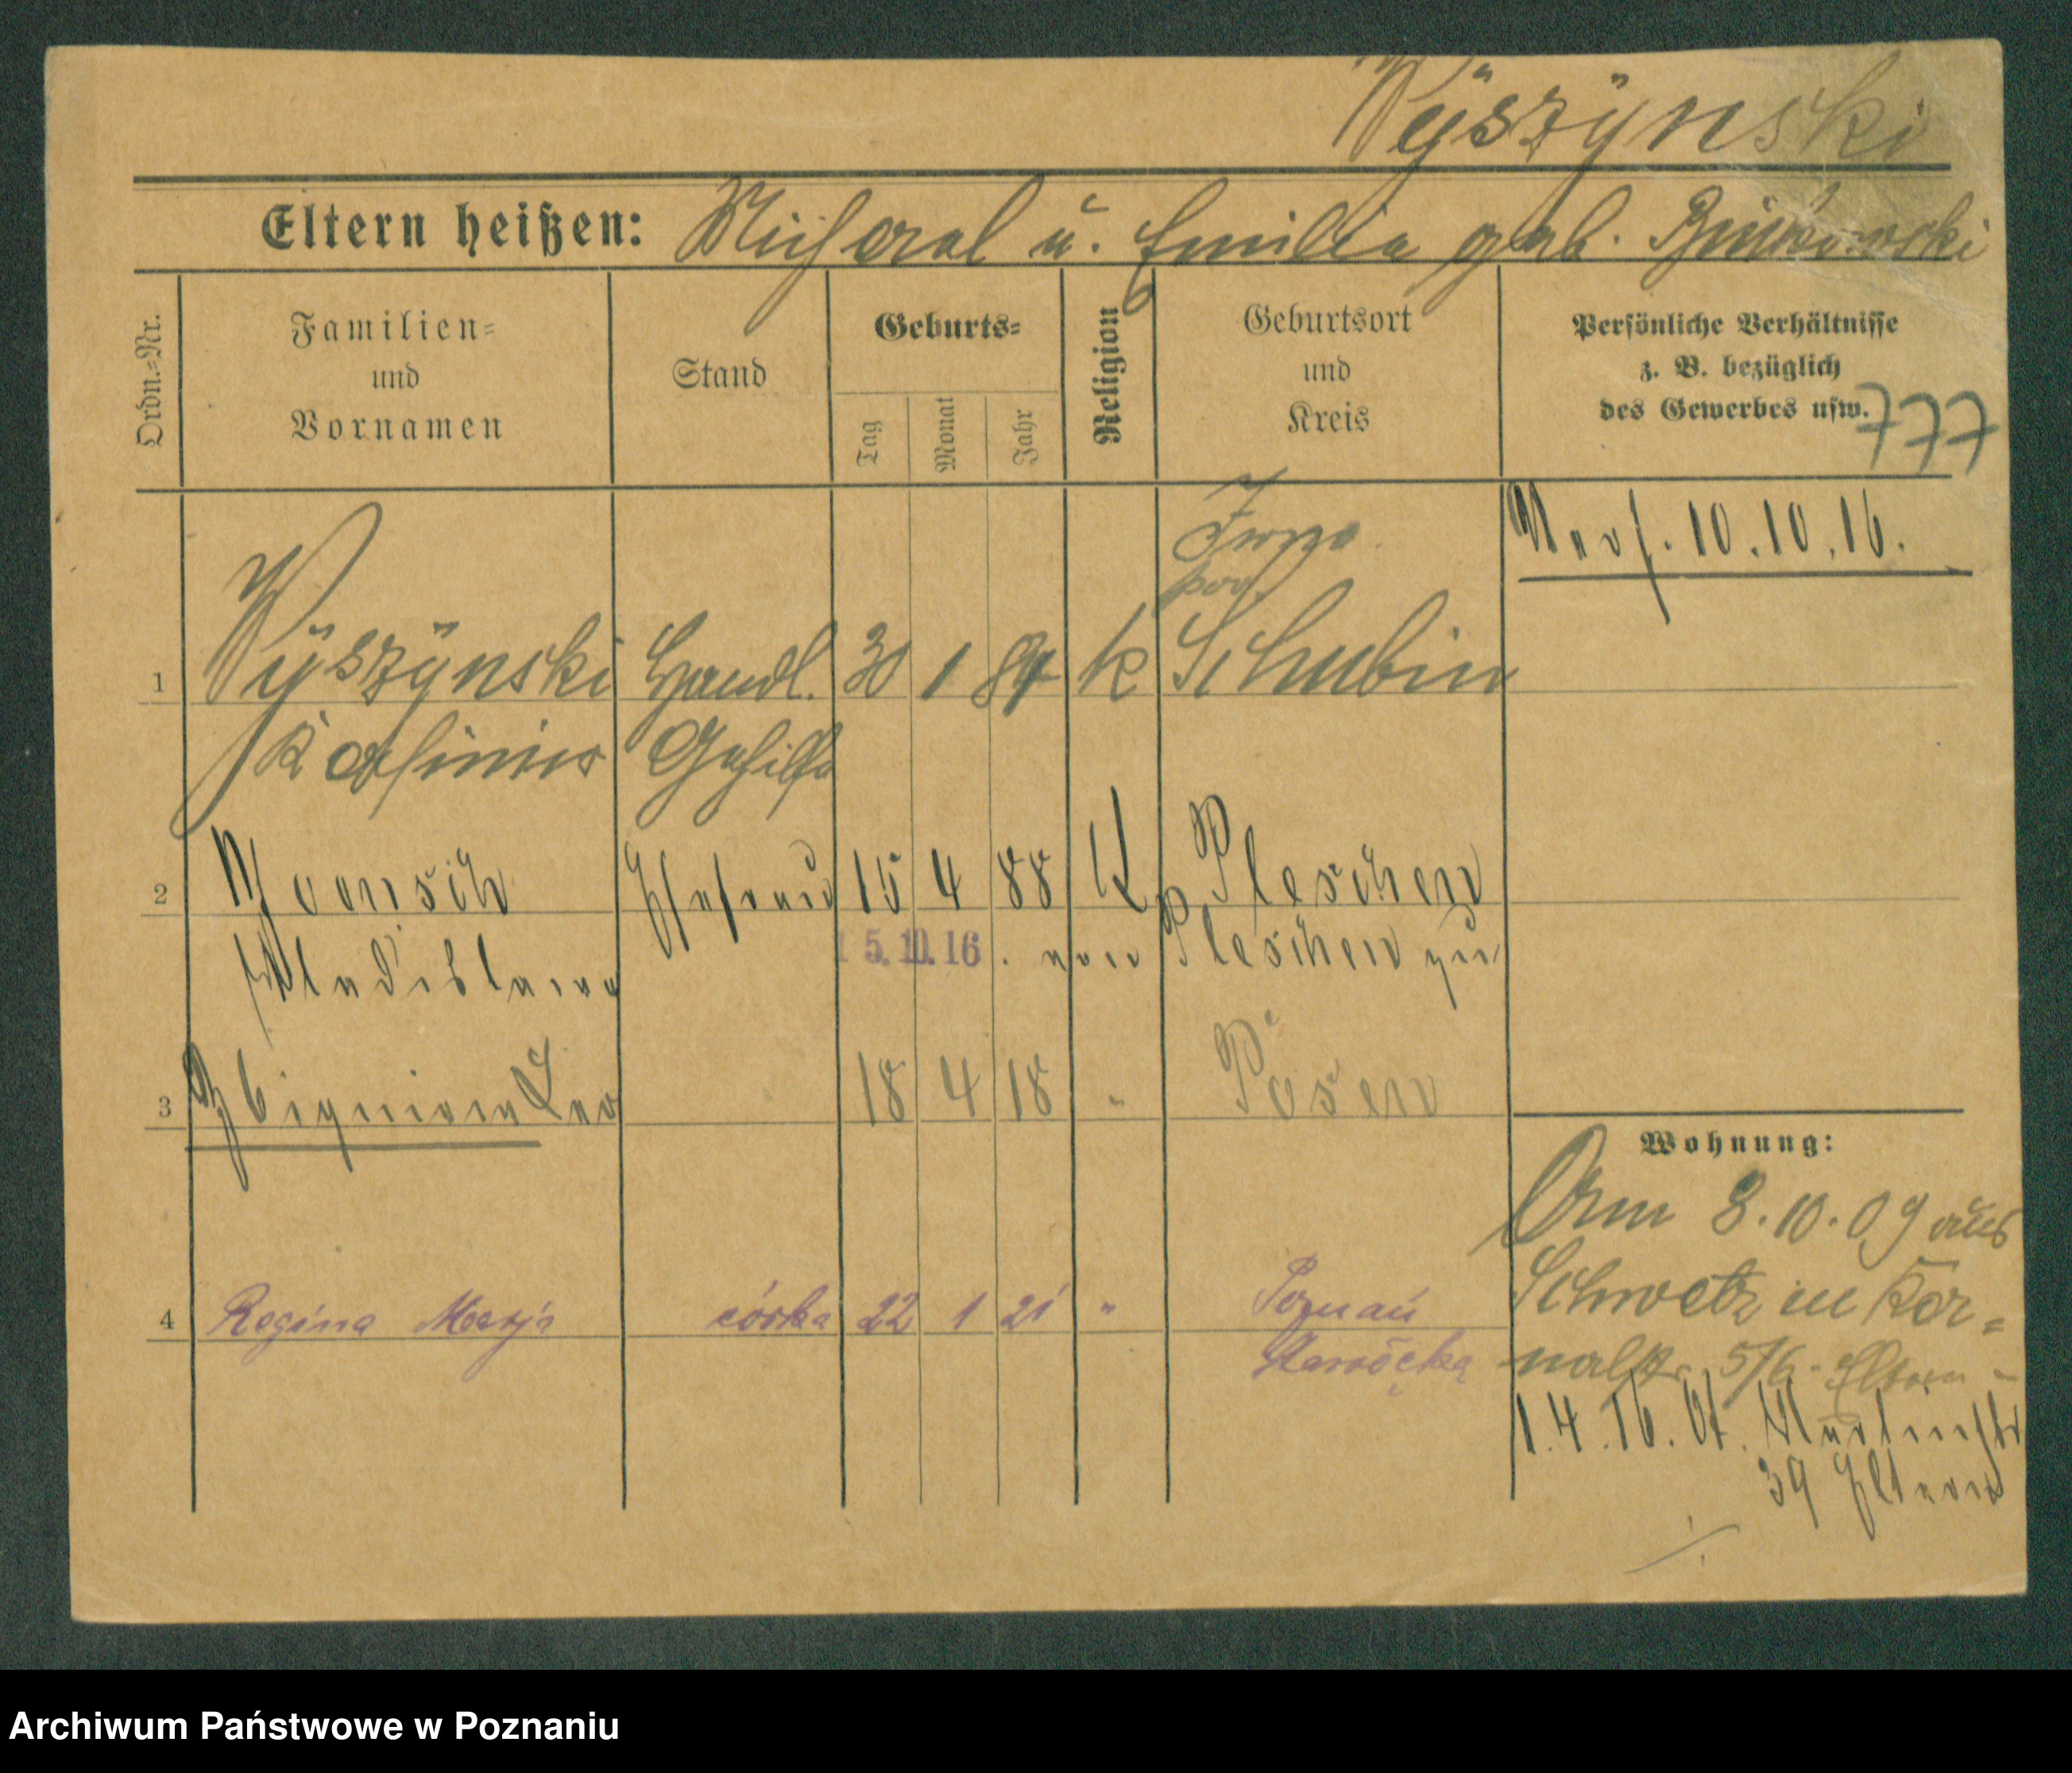 Wÿszÿnski
Eltern heißen: Michael u. Emilia geb.
Ordn.=Nr.
Familien=
und
Vornamen
Stand
Geburts=
Tag
Monat
Jahr
Religion
Geburtsort
und
Kreis
Persönliche Verhältnisse
z. B. bezüglich
des Gewerbes usw.
777
pow.
Verh. 10.10.16.
1 Wÿszÿnski Handl. 30 1 84 k Schubin
Kasimir Gehilfe
2 Ehefrau 15 4 88 K Pleschen
Wladislawa 15.10.16. von Pleschen zu
Posen
3 Zbigniew Leo 18 4 18 " Posen
Wohnung:
Am 8.10.09 aus
4 Regina Marja córka 22 1 21 " Poznań
Schwetz in Kar=
nalstr. 5/6. Eltern -
1.4.16. Martinstr
39 Eltern
Archiwum Państwowe w Poznaniu